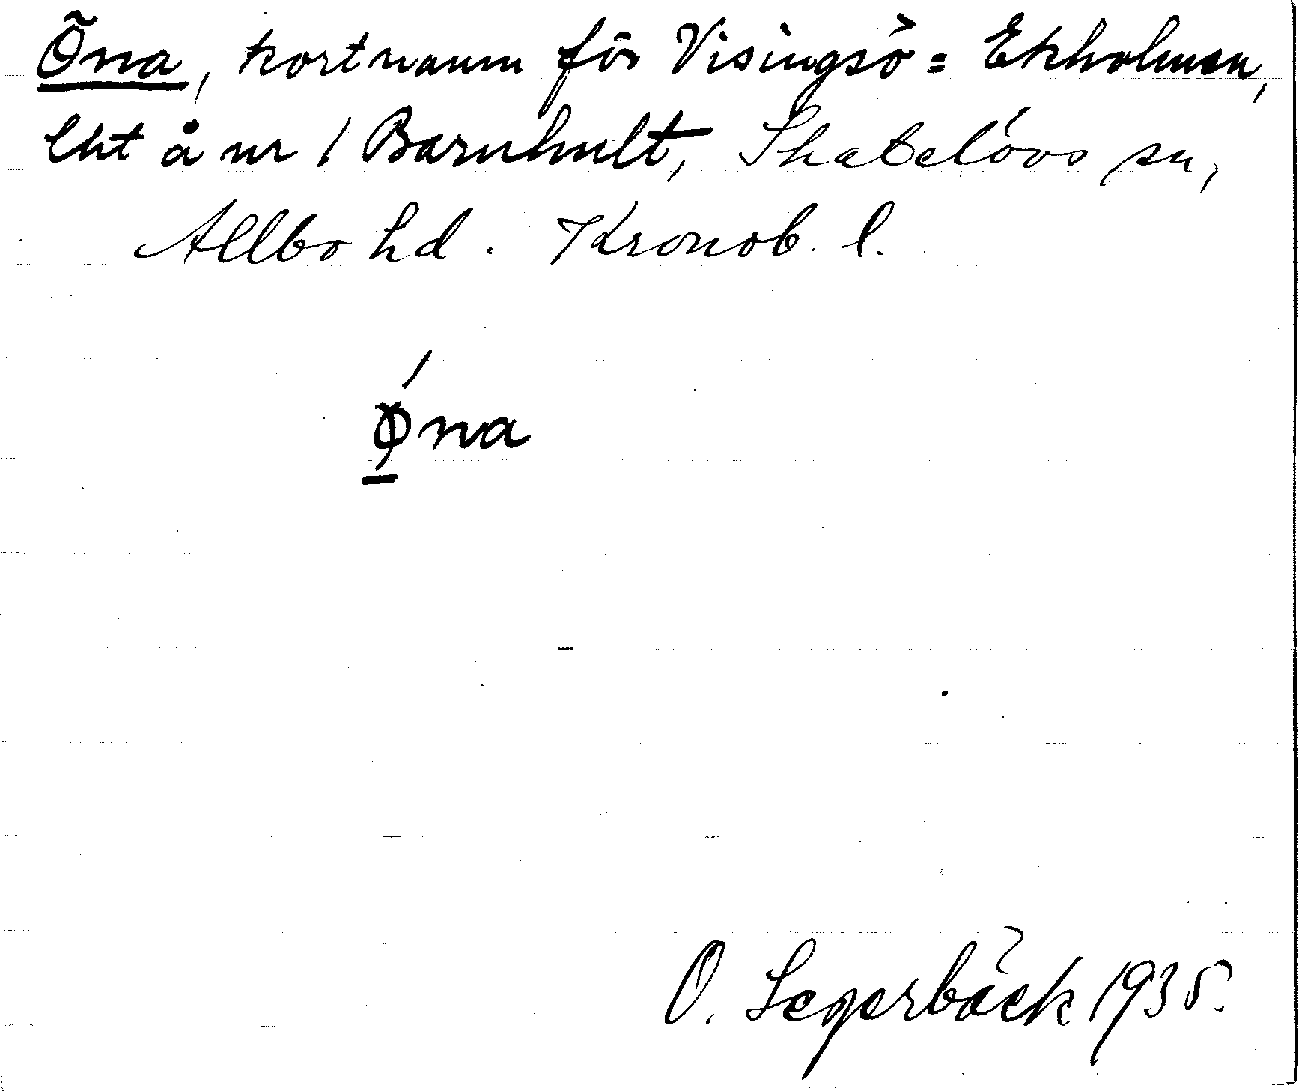 Öna, kortnamn för Visingsö = Ekholmen,
lht å nr 1 Barnhult, Skatelövs sn,
Allbo hd. Kronob. l.
Øna
O. Segerbäck 1935.